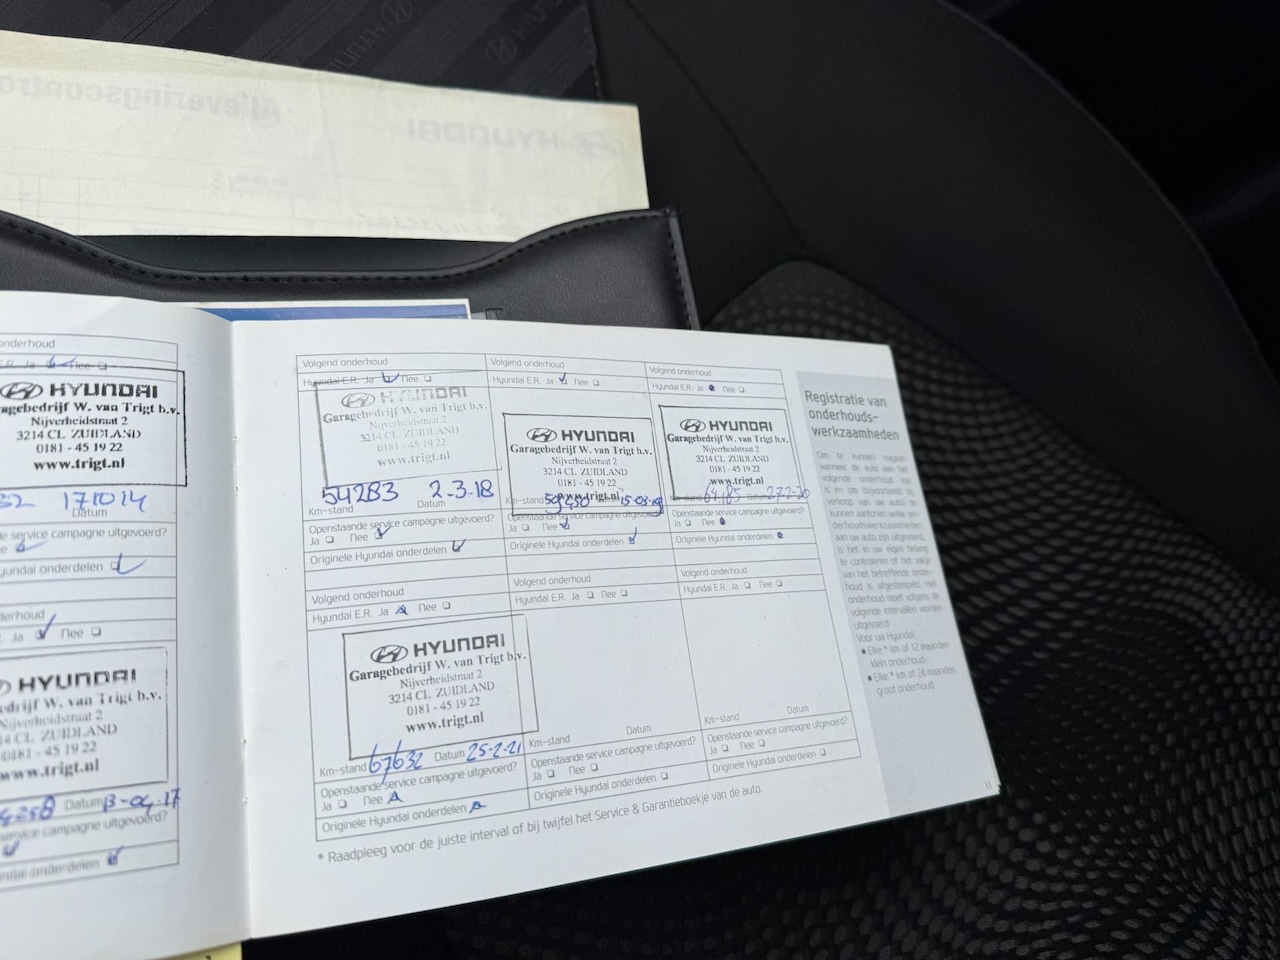 HYUNDAI
Afleveringscontro
HYUNDAI
onderhoud
E.R. Ja Nee
HYUNDAI
agebedrijf W. van Trigt b.v.
Nijverheidstraat 2
3214 CL ZUIDLAND
0181 - 45 19 22
www.trigt.nl
32 171014
Datum
e service campagne uitgevoerd?
yundai onderdelen
derhoud
Ja Nee
HYUNDAI
edrijf W. van Trigt b.v.
Nijverheidstraat 2
14 CL ZUIDLAND
0181 - 45 19 22
www.trigt.nl
Datum 13-04-17
service campagne uitgevoerd?
ndai onderdelen
Volgend onderhoud
Hyundai E.R. Ja Nee
HYUNDAI
Garagebedrijf W. van Trigt b.v.
Nijverheidstraat 2
3214 CL ZUIDLAND
0181 - 45 19 22
www.trigt.nl
54283 2-3-18
Km-stand Datum
Openstaande service campagne uitgevoerd?
Ja Nee
Originele Hyundai onderdelen
Volgend onderhoud
Hyundai E.R. Ja Nee
HYUNDAI
Garagebedrijf W. van Trigt b.v.
Nijverheidstraat 2
3214 CL ZUIDLAND
0181 - 45 19 22
www.trigt.nl
Km-stand 59450 15-03-19
Openstaande service campagne uitgevoerd?
Ja Nee
Originele Hyundai onderdelen
Volgend onderhoud
Hyundai E.R. Ja Nee
HYUNDAI
Garagebedrijf W. van Trigt b.v.
Nijverheidstraat 2
3214 CL ZUIDLAND
0181 - 45 19 22
www.trigt.nl
Km-stand 64185 Datum 27-2-20
Openstaande service campagne uitgevoerd?
Ja Nee
Originele Hyundai onderdelen
Volgend onderhoud
Hyundai E.R. Ja Nee
HYUNDAI
Garagebedrijf W. van Trigt b.v.
Nijverheidstraat 2
3214 CL ZUIDLAND
0181 - 45 19 22
www.trigt.nl
Km-stand 67632 Datum 25-2-21
Openstaande service campagne uitgevoerd?
Ja Nee
Originele Hyundai onderdelen
Volgend onderhoud
Hyundai E.R. Ja Nee
Km-stand Datum
Openstaande service campagne uitgevoerd?
Ja Nee
Originele Hyundai onderdelen
Volgend onderhoud
Hyundai E.R. Ja Nee
Km-stand Datum
Openstaande service campagne uitgevoerd?
Ja Nee
Originele Hyundai onderdelen
* Raadpleeg voor de juiste interval of bij twijfel het Service & Garantieboekje van de auto.
Registratie van
onderhouds-
werkzaamheden
Om te kunnen nagaan
wanneer de auto aan het
volgende onderhoud toe
is en om (bijvoorbeeld bij
verkoop van uw auto) te
kunnen aantonen welke on-
derhoudswerkzaamheden
aan uw auto zijn uitgevoerd,
is het in uw eigen belang
te controleren of het vakje
van het betreffende onder-
houd is afgestempeld. Het
onderhoud moet volgens de
volgende intervallen worden
uitgevoerd:
Voor uw Hyundai:
• Elke * km of 12 maanden
klein onderhoud.
• Elke * km of 24 maanden
groot onderhoud.
11